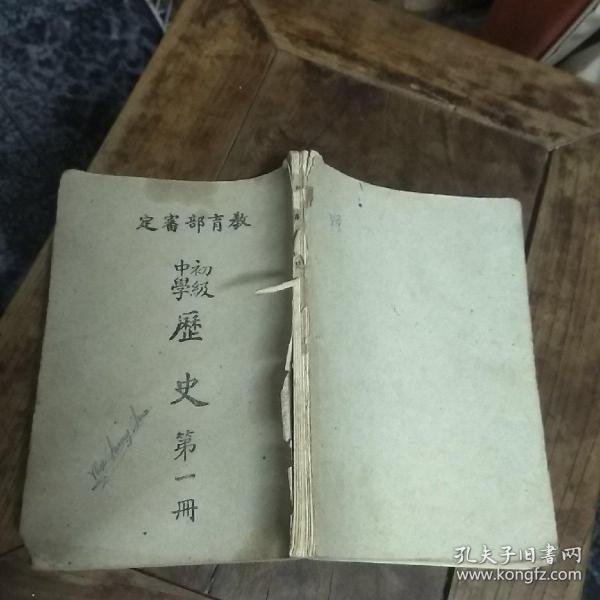 教育部審定
初級
中學
歷史第一冊
孔夫子旧书网
www.kongfz.com